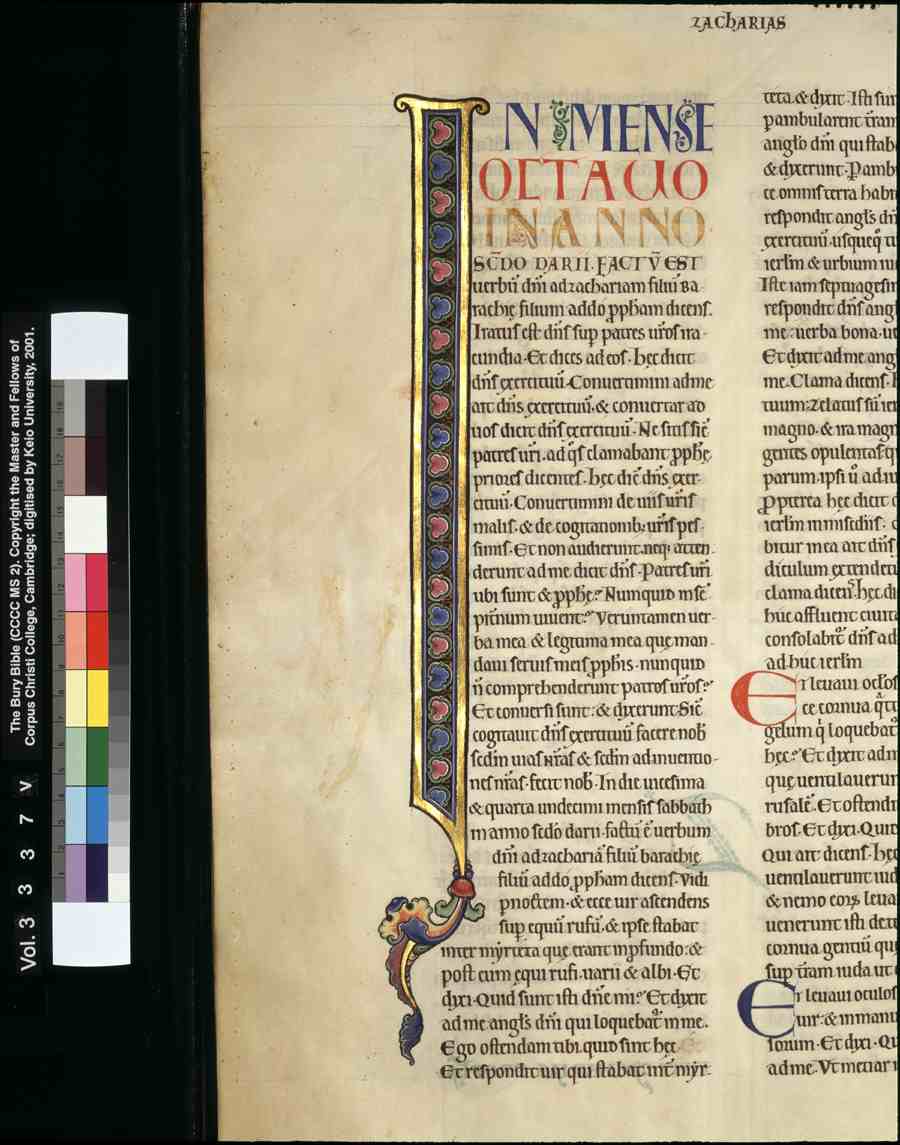 ZACHARIAS
IN MENSE
OCTAUO
IN ANNO
SC̄DO DARII. FACTV̄ EST
uerbū dn̄i ad zachariam filiū ba
rachię filium addo ꝓpham dicens.
Iratus est dn̄s sup patres ur̄os ira
cundia. Et dices ad eos. hęc dicit
dn̄s exercituū. Conuertimini ad me
ait dn̄s exercituū. & conuertar ad
uos dicit dn̄s exercituū. Ne sitis sic̄
patres ur̄i. ad q̇s clamabant ꝓphę
priores dicentes. hęc dic̄ dn̄s exer
cituū. Conuertimini de uiis ur̄is
malis. & de cogitationib; ur̄is pes
simis. Et non audierunt. neq; atten
derunt ad me dicit dn̄s. Patres ur̄i
ubi sunt & ꝓphę? Nunquid in se
pit̄num uiuent? Veruntamen uer
ba mea & legitima mea quę man
daui seruis meis ꝓphis. nunquid
n̄ comprehenderunt patres ur̄os?
Et conuersi sunt. & dixerunt. Sic̄
cogitauit dn̄s exercituū facere nob̄
sc̄dm uias nr̄as & sc̄dm adinuentio
nes nr̄as. fecit nob̄. In die uicesima
& quarta undecimi mensis sabbath
in anno sc̄do darii. factū ē uerbum
dn̄i ad zachariā filiū barachię
filiū addo ꝓpham dicens. Vidi
p noctem. & ecce uir ascendens
sup equū rufū. & ipse stabat
inter myrteta quę erant in ꝓfundo. &
post eum equi rufi. uarii & albi. Et
dixi. Quid sunt isti dn̄e mi? Et dixit
ad me angl̄s dn̄i qui loquebat̄ in me.
Ego ostendam tibi. quid sint hęc.
Et respondit uir qui stabat int̄ myr
teta. & dixit. Isti sun
pambularent t̄ram
angl̄o dn̄i qui stab
& dixerunt. Pamb
ce omnis terra habi
respondit angl̄s dn̄
exercituū. usqueq̇ tu
ierl̄m & urbium iu
Iste iam septuagesim
respondit dn̄s angl
me. uerba bona. ue
Et dixit ad me ang
me. Clama dicens. h
tuum: Zelatus sū ier
magno. & ira magn
gentes opulentas. q
parum. ipsi ū adiu
Ꝓpterea hęc dicit d
ierl̄m in misc̄diis.
bitur in ea ait dn̄s
diculum extendet̄
clama dicens. hęc di
huc affluent ciuita
consolabit̄ dn̄s ad
adhuc ierl̄m
Et leuaui oc̄los
ecce cornua q̇tt
gelum q̇ loquebat̄
hęc? Et dixit ad m
quę uentilauerun
rusalē. Et ostendi
bros. Et dixi. Quid
Qui ait dicens. hęc
uentilauerunt iud
& nemo eorꝝ leua
uenerunt isti dete
cornua gentiū quę
sup t̄ram iuda ut d
Et leuaui oculos
uir. & in manu
sorum. Et dixi. Qu
ad me. Vt metiar i
The Bury Bible (CCCC MS 2). Copyright the Master and Fellows of
Corpus Christi College, Cambridge; digitised by Keio University, 2001.
Vol. 3 3 3 7 v